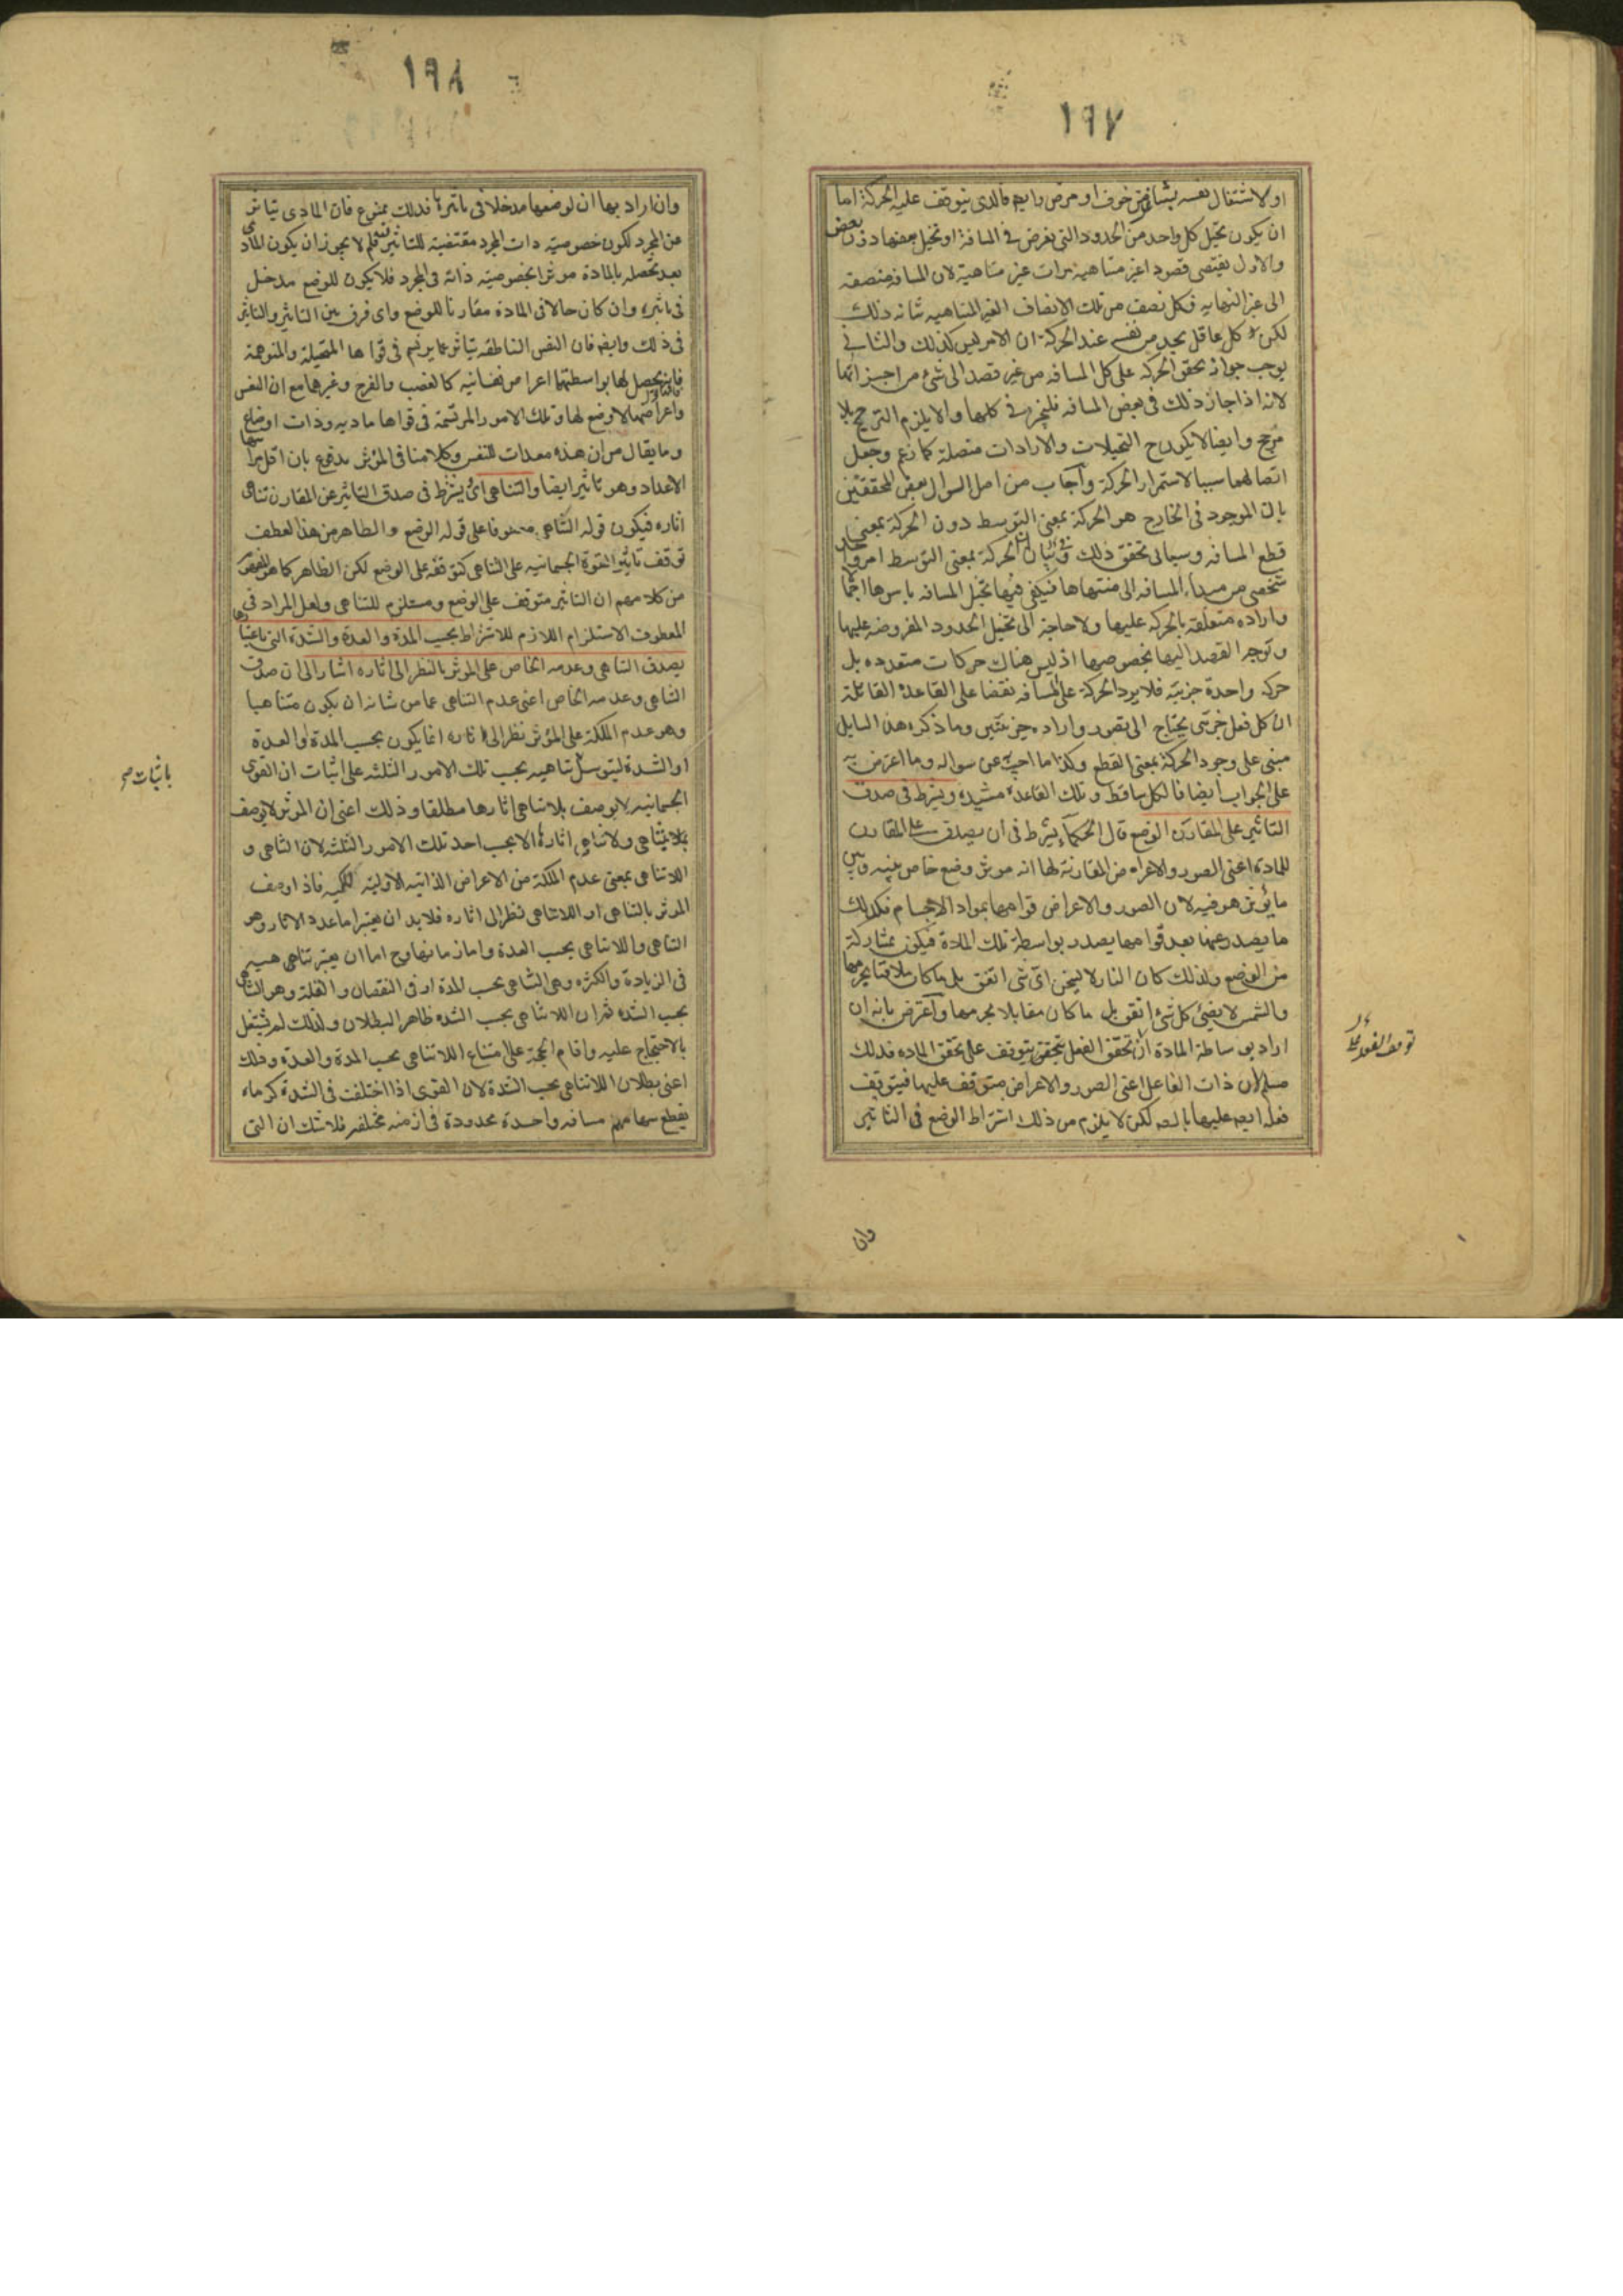 ١٩٧
او لاشتغال نفسه بشاغل من خوف او مرض وايضا فالذى يتوقف عليه الحركة اما
ان يكون تخيل كل واحد من الحدود التى تفرض فى المسافة او تخيل بعضها دون بعض
والاول يقتضى قصود اغير متناهية مرات غير متناهية لان المسافة منصفة
الى غير النهايه فكل نصف من تلك الانصاف الغير المتناهيه شانه ذلك
لكن كل عاقل يجد من نفسه عند الحركة ان الامر ليس كذلك والثانى
يوجب جواز تحقق الحركة على كل المسافه من غير قصد الى شئ من اجزائها
لانه اذا جاز ذلك فى بعض المسافه فليجز فى كلها والا يلزم الترجيح بلا
مرجح وايضا لا يكون ح التخيلات والارادات متصلة كما زعم وجعل
اتصالهما سببا لاستمرار الحركة وأجاب من اصل السوال بعض المحققين
بان الموجود فى الخارج هو الحركة بمعنى التوسط دون الحركة بمعنى
قطع المسافه وسياتى تحقق ذلك فى بيان ان الحركة بمعنى التوسط امر واحد
شخصى من مبداء المسافه الى منتهاها فيكفى فيها تخيل المسافه باسرها اجمالا
واراده متعلقه بالحركة عليها ولا حاجة الى تخيل الحدود المفروضه عليها
وتوجه القصد اليها بخصوصها اذ ليس هناك حركات متعدده بل
حركه واحدة جزئيه فلا يرد الحركة على المسافه نقضا على القاعدة القائلة
ان كل فعل جزئى يحتاج الى تصور واراده جزئيتين وما ذكره هذا السايل
مبنى على وجود الحركة بمعنى القطع وكذا ما اجيب عن سواله وما اعترض به
على الجواب ايضا فالكل ساقط وتلك القاعدة مشيدة ويشترط فى صدق
التاثير على المقارن الوضع قال الحكماء يشترط فى ان يصدق على المقارن
للمادة اعنى الصور والاعراض المقارنة لها انه موثر وضع خاص بينه وبين
ما يؤثر هو فيه لان الصور والاعراض قوامها بمواد الاجسام فكذلك
ما يصدر عنها بعد قوامها يصدر بواسطة تلك المادة فيكون بمشاركة
من الوضع ولذلك كان النار لا يسخن اى شى اتفق بل ما كان ملاقيا بجرمها
والشمس لا يضئ كل شئ اتفق بل ما كان مقابلا بجرمها وأعترض بانه ان
اراد بوساطة المادة ان تحقق الفعل يتوقف على تحقق الماده فذلك
مسلم لان ذات الفاعل اعنى الصور والاعراض متوقف عليها فيتوقف
فعله ايضا عليها لكن لا يلزم من ذلك اشتراط الوضع فى التاثير
وان
١٩٨
وان اراد بها ان لوضعها مدخلا فى تاثيرها فذلك ممنوع فان المادى يتاثر
عن المجرد لكون خصوصيته ذات المجرد مقتضيته للتاثير فيه فلم لا يجوز ان يكون المادى
بعد تحصله بالمادة موثرا بخصوصيته ذاته فى المجرد فلا يكون للوضع مدخل
فى تاثيره وان كان حالا فى المادة مقارنا للوضع واى فرق بين التاثير والتاثر
فى ذلك وايضا فان النفس الناطقه يتاثر بما يرتسم فى قواها المتخيلة والمتوهمة
فانه يحصل لها بواسطتهما اعراض نفسانيه كالغضب والفرح وغيرهما مع ان النفس
واعراضها لا وضع لها وتلك الامور المرتسمة فى قواها ماديه وذات اوضاع
وما يقال من ان هذه معدات للنفس وكلامنا فى المؤثر مدفوع بان اقل مراتبها
الاعداد وهو تاثير ايضا والتناهى اى يشترط فى صدق التاثير عن المقارن تناهى
اثاره فيكون قوله التناهى معطوفا على قوله الوضع والظاهر من هذا العطف
توقف تاثير القوة الجسمانيه على التناهى كتوقفه على الوضع لكن الظاهر كما هو المفهوم
من كلامهم ان التاثير متوقف على الوضع ومستلزم للتناهى ولعل المراد فى
المعطوف الاستلزام اللازم للاشتراط بحسب المدة والعدة والشدة التى باعتبارها
يصدق التناهى وعدمه الخاص على الموثر بالنظر الى اثاره اشار الى ان صدق
التناهى وعدمه الخاص اعنى عدم التناهى عما من شانه ان يكون متناهيا
وهو عدم الملكة على المؤثر نظرا الى اثاره انما يكون بحسب المدة او العدة
او الشدة ليتوسل بتناهيه بحسب تلك الامور الثلثه على اثبات ان القوى
الجسمانيه لا يوصف بلا تناهى اثارها مطلقا وذلك اعنى ان الموثر لا يوصف
بلا تناهى ولا تناهى اثاره الا بحسب احد تلك الامور الثلثه لان التناهى و
اللاتناهى بمعنى عدم الملكة من الاعراض الذاتيه الاوليه للكميه فاذا وصف
الموثر بالتناهى او اللاتناهى نظرا الى اثاره فلابد ان يعتبر اما عدد الاثار وهو
التناهى واللاتناهى بحسب العدة واما زمانها وح اما ان يعتبر تناهى هيه
فى الزيادة والكثره وهى التناهى بحسب المدة او فى النقصان والقلة وهو التناهى
بحسب الشده ثم ان اللاتناهى بحسب الشده ظاهر البطلان ولذلك لم يشتغل
بالاحتجاج عليه واقام الحجة على امتناع اللاتناهى بحسب المدة والعدة وذلك
اعنى بطلان اللاتناهى بحسب الشدة لان القوى اذا اختلفت فى الشدة كرماه
يقطع سهامهم مسافه واحدة محدودة فى ازمنه مختلفه فلا شك ان التى
باثبات صح